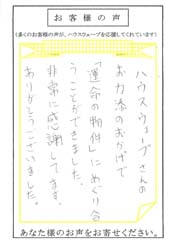 お客様の声
（多くのお客様の声が、ハウスウェーブを応援してくれています）
ハウスウェーブさんの
お力添のおかげで
「運命の物件」にめぐり合
うことができました。
非常に感謝してます。
ありがとうございました。
あなた様のお声をお寄せください。